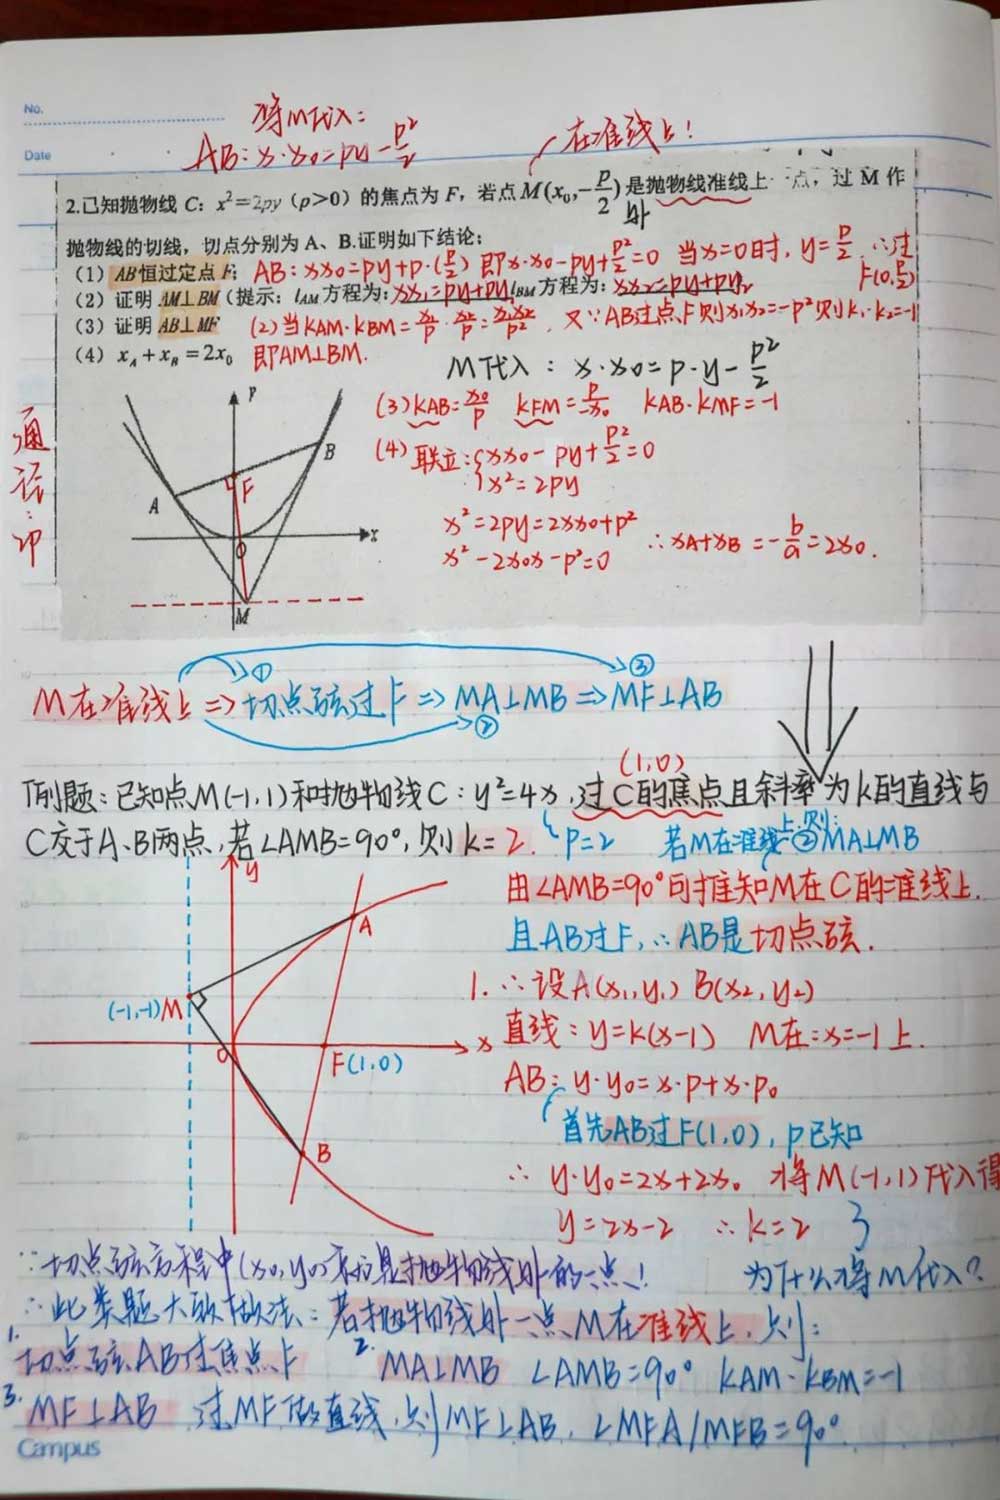 No.
将M代入:
Date
AB: x·x₀=py-p²/2
在准线上!
2.已知抛物线 C: x²=2py (p>0) 的焦点为 F, 若点 M(x₀,-p/2) 是抛物线准线上一点, 过 M 作
外
抛物线的切线, 切点分别为 A、B.证明如下结论:
(1) AB恒过定点 F; AB: xx₀=py+p·(p/2) 即x·x₀-py+p²/2=0 当x=0时, y=p/2 ∴过F(0,p/2)
(2) 证明 AM⊥BM (提示: l_AM 方程为: xx₁=py+py₁ l_BM 方程为: xx₂=py+py₂
(3) 证明 AB⊥MF (2)当KAM·KBM=x₁/p·x₂/p=x₁x₂/p², 又∵AB过点F则x₁x₂=-p²则k₁·k₂=-1
(4) x_A+x_B=2x₀ 即AM⊥BM.
M代入: x·x₀=p·y-p²/2
(3) KAB=x₀/p KFM=p/-x₀ KAB·KMF=-1
(4) 联立:{xx₀-py+p²/2=0
x²=2py
x²=2py=2xx₀+p²
x²-2x₀x-p²=0 ∴xA+xB=-b/a=2x₀.
通径:2p
P
B
A
F
x
O
M
① ③
M在准线上⇒切点弦过F⇒MA⊥MB⇒MF⊥AB
②
(1,0)
例题:已知点M(-1,1)和抛物线C:y²=4x,过C的焦点且斜率为k的直线与
C交于A、B两点,若∠AMB=90°,则k=2. p=2 若M在准线上,则:②MA⊥MB
y
由∠AMB=90°可推知M在C的准线上.
A
且AB过F,∴AB是切点弦.
1.∴设A(x₁,y₁) B(x₂,y₂)
(-1,-1)M
直线:y=k(x-1) M在:x=-1上.
O
x
F(1,0)
AB: y·y₀=x·p+x·p₀
首先AB过F(1,0),p已知
B
∴y·y₀=2x+2x₀ 将M(-1,1)代入得
y=2x-2 ∴k=2
∵切点弦方程中(x₀,y₀)表示是抛物线外的一点! 为什么将M代入?
∴此类题大致做法:若抛物线外一点M在准线上,则:
1.切点弦AB过焦点F 2. MA⊥MB ∠AMB=90° KAM·KBM=-1
3. MF⊥AB 过MF做直线,则MF⊥AB,∠MFA/MFB=90°.
Campus